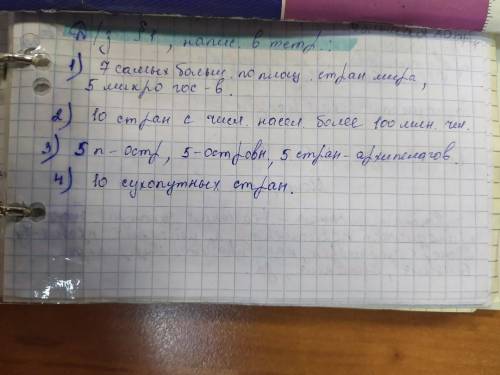 Д/з §1, напис. в тетр.:
1) 7 самых больш. по площ. стран мира,
5 микро гос-в.
2) 10 стран с числ. насел. более 100 млн. чел.
3) 5 п-остр, 5-островн, 5 стран-архипелагов.
4) 10 сухопутных стран.